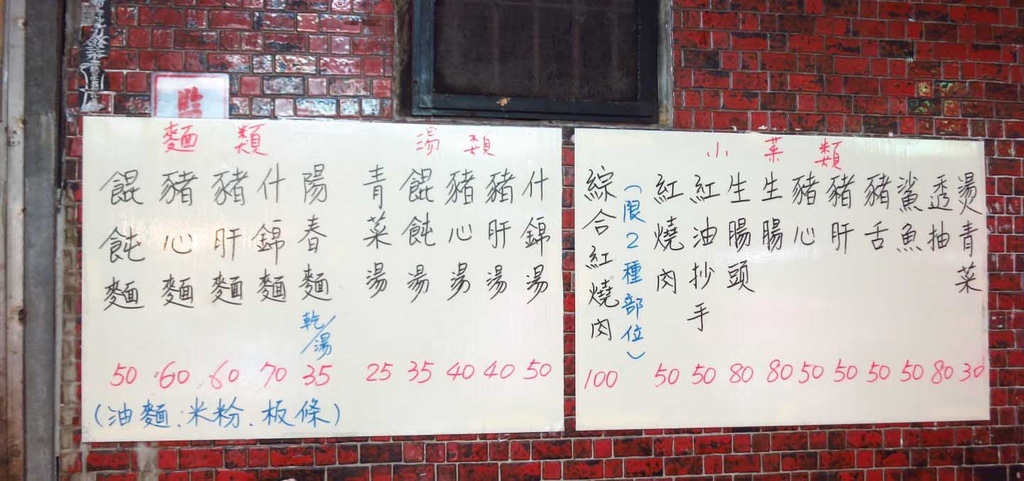 麵類
餛飩麵 50
豬心麵 60
豬肝麵 60
什錦麵 70
陽春麵 乾/湯 35
(油麵.米粉.板條)
湯類
青菜湯 25
餛飩湯 35
豬心湯 40
豬肝湯 40
什錦湯 50
小菜類
綜合紅燒肉 100
(限2種部位)
紅燒肉 50
紅油抄手 50
生腸頭 80
生腸 80
豬心 50
豬肝 50
豬舌 50
鯊魚 50
透抽 80
燙青菜 30